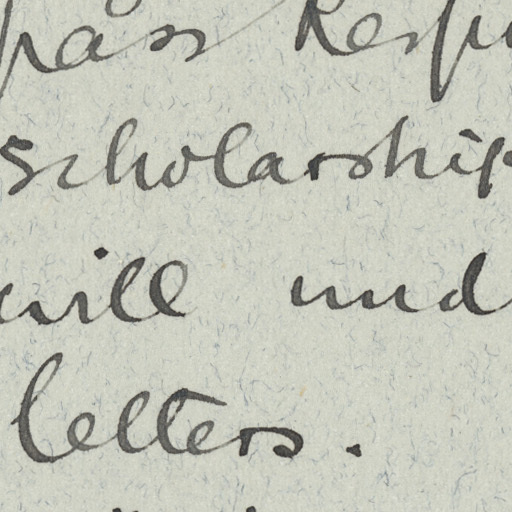 pass Resp
scholarship
will und
letters.